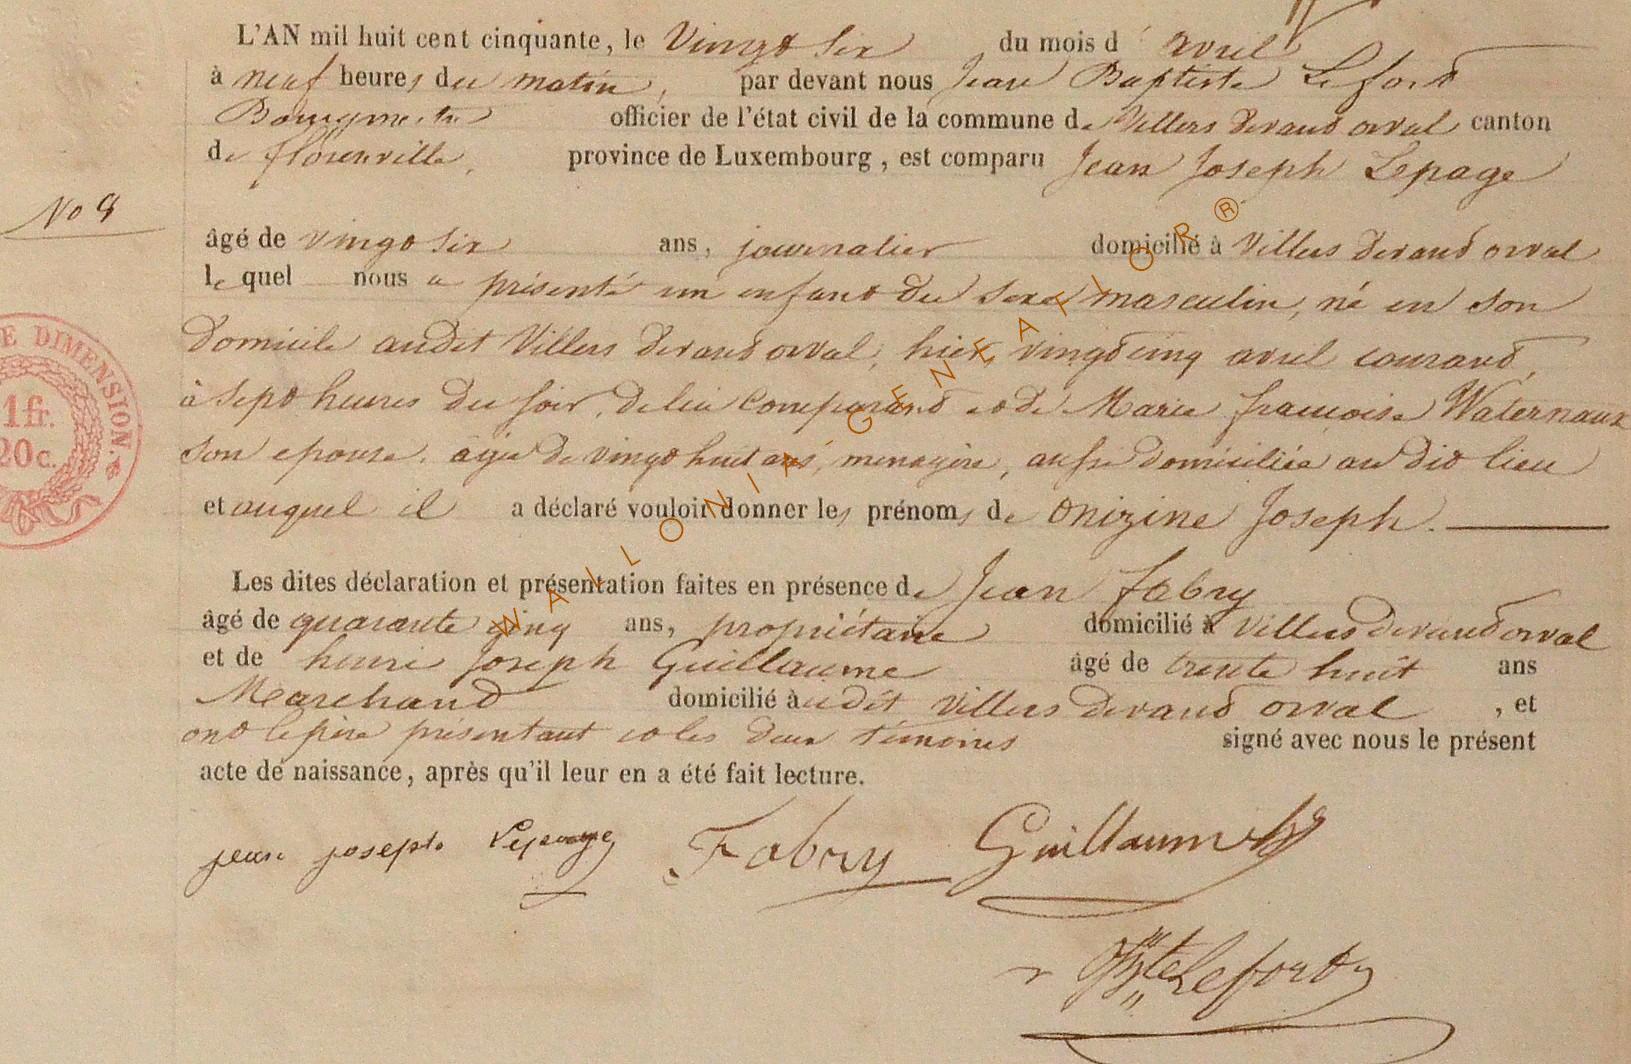 L'AN mil huit cent cinquante, le Vingt six du mois d' avril
à neuf heures du matin, par devant nous Jean Baptiste Lefort
Bourgmestre officier de l'état civil de la commune de Villers devant orval canton
de florenville, province de Luxembourg, est comparu Jean Joseph Lepage
No 8
âgé de vingt six ans, journalier domicilié à Villers devant orval
lequel nous a présenté un enfant du sexe masculin, né en son
domicile audit Villers devant orval, hier vingt cinq avril courant,
à sept heures du soir, de lui Comparant et de Marie françoise Waternaux
son epouse, agée de vingt huit ans, menagère, aussi domiciliée au dit lieu
et auquel il a déclaré vouloir donner les prénoms de Onizine Joseph.
Les dites déclaration et présentation faites en présence de Jean fabry
âgé de quarante cinq ans, propriétaire domicilié à Villers devant orval
et de henri Joseph Guillaume âgé de trente huit ans
Marchand domicilié audit Villers devant orval, et
ont le père présentant et les deux témoins signé avec nous le présent
acte de naissance, après qu'il leur en a été fait lecture.
jean joseph Lepage Fabry Guillaume
Bte Lefort
E DIMENSION.
1 fr.
20 c.
WALLONIA GENEAFLOR ®